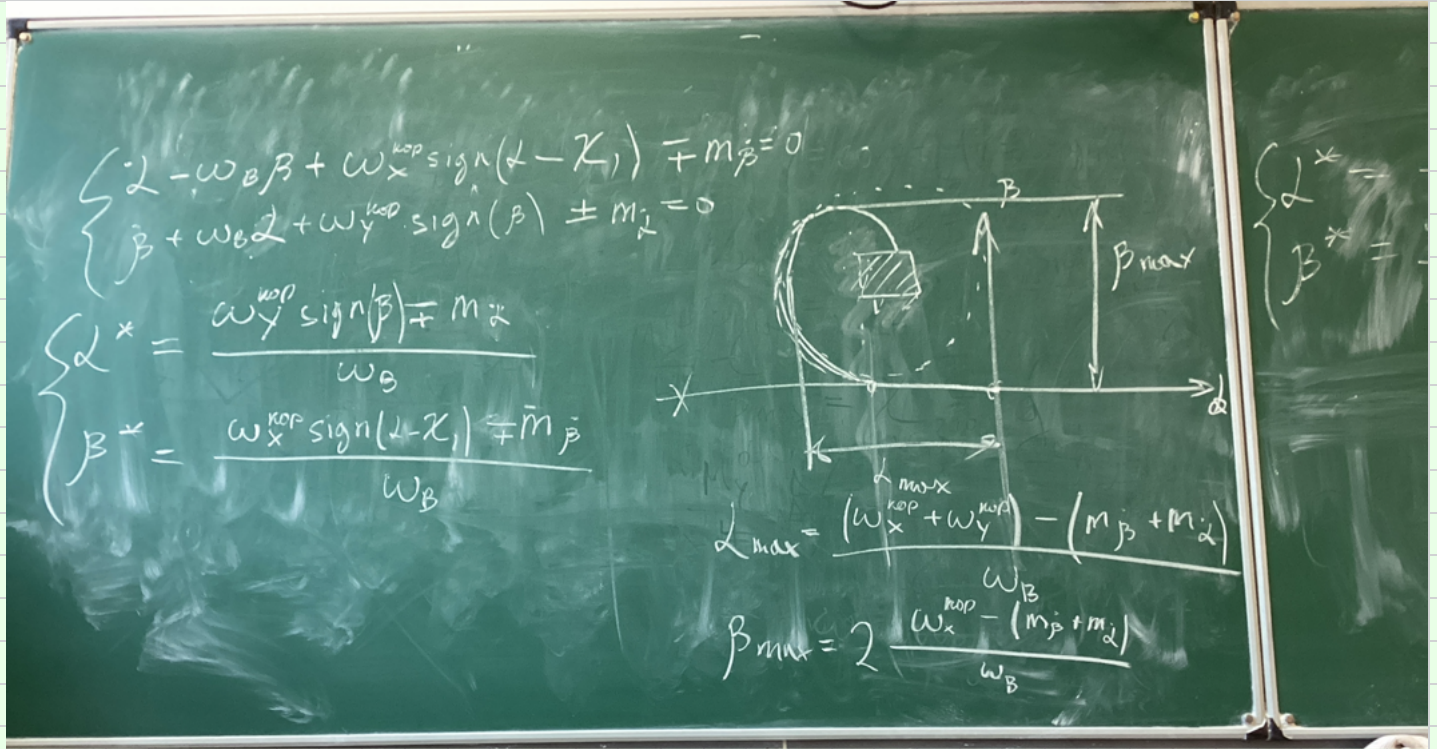 α̇ - ω_B β + ω_x^кор sign(α - X₁) ∓ m_β̇ = 0
β̇ + ω_B α + ω_y^кор sign(β) ± m_α̇ = 0
α* = (ω_y^кор sign(β) ∓ m_α̇) / ω_B
β* = (ω_x^кор sign(α - X₁) ∓ m̄_β̇) / ω_B
β
β max
α
α max
α max = ((ω_x^кор + ω_y^кор) - (m_β̇ + m_α̇)) / ω_B
β max = 2 (ω_x^кор - (m_β̇ + m_α̇)) / ω_B
α* =
β* =